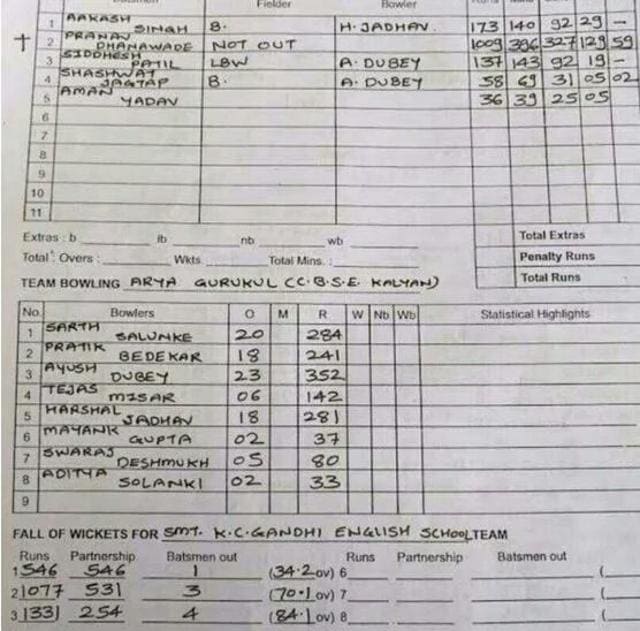 Batsmen Fielder Bowler Runs
1 AAKASH SINGH B. H. JADHAV. 173 140 92 29 -
2 PRANAV DHANAWADE NOT OUT 1009 396 327 129 59
3 SIDDHESH PATIL LBW A. DUBEY 137 143 92 19 -
4 SHASHWAT JAGTAP B. A. DUBEY 58 69 31 05 02
5 AMAN YADAV 36 39 25 05
6
7
8
9
10
11
Extras : b lb nb wb Total Extras
Total : Overs : Wkts Total Mins. : Penalty Runs
Total Runs
TEAM BOWLING ARYA GURUKUL (C.B.S.E. KALYAN)
No. Bowlers O M R W Nb Wb Statistical Highlights
1 SARTH SALUNKE 20 284
2 PRATIK BEDEKAR 18 241
3 AYUSH DUBEY 23 352
4 TEJAS MISAR 06 142
5 HARSHAL JADHAV 18 281
6 MAYANK GUPTA 02 37
7 SWARAJ DESHMUKH 05 80
8 ADITYA SOLANKI 02 33
9
FALL OF WICKETS FOR SMT. K.C.GANDHI ENGLISH SCHOOL TEAM
Runs Partnership Batsmen out Runs Partnership Batsmen out
1 546 546 1 (34.2 ov) 6 (
2 1077 531 3 (70.1 ov) 7 (
3 1331 254 4 (84.1 ov) 8 (